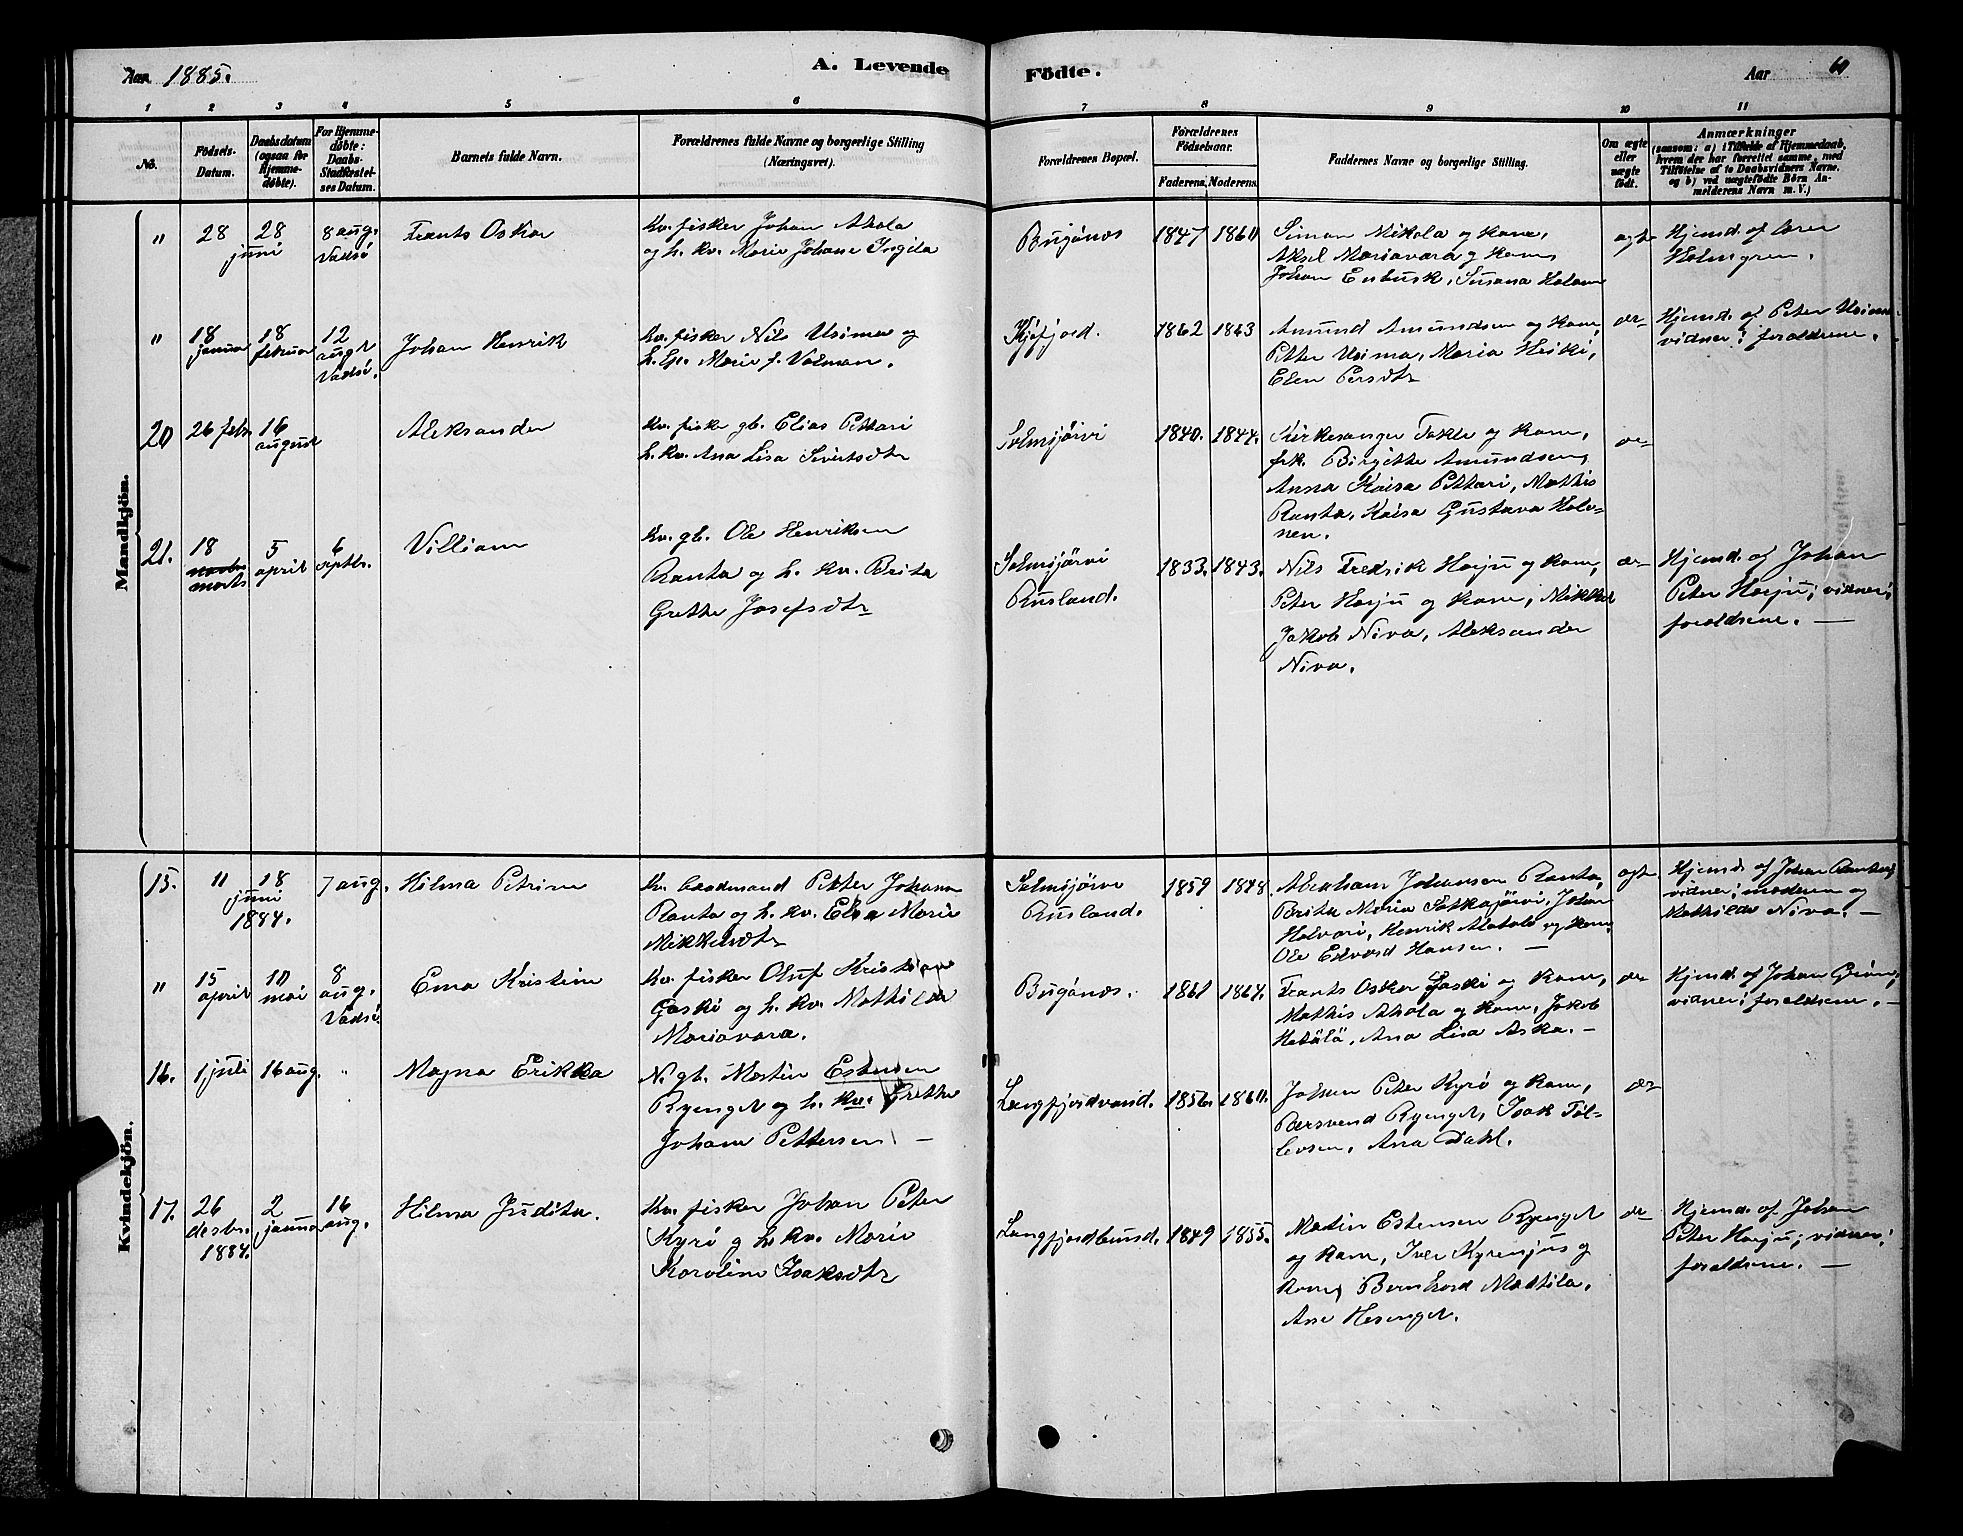 Aar 1885.
A. Levende
Födte.
Aar
60
1 2 3 4 5 6 7 8 9 10 11
No.
Födsels-
Datum.
Daabsdatum
(ogsaa for
Hjemme-
döbte).
For Hjemme-
döbte:
Daabs-
Stadfæstel-
ses Datum.
Barnets fulde Navn.
Forældrenes fulde Navne og borgerlige Stilling
(Næringsvei).
Forældrenes Bopæl.
Forældrenes
Födselsaar.
Faderens. Moderens.
Faddernes Navne og borgerlige Stilling.
Om ægte
eller
uægte
födt.
Anmærkninger
(saasom: a) i Tilfælde af Hjemmedaab,
hvem der har forrettet samme, med
Tilföielse af to Daabsvidners Navne,
og b) ved uægtefödte Börn An-
melderens Navn m. V.)
Mandkjön.
"
28
juni
28
8 aug.
Vadsö
Frants Oskar
Kv. fisker Johan Ahola
og h. kv. Marie Johane Ingila
Bugönæs
1847 1860
Simon Mikola og kone,
Aksel Mariavara og kone,
Johan Enbusk, Susana
ægte
Hjemd. af lærer
Holmgren.
"
18
januar
18
februar
12
augst
Vadsö.
Johan Henrik
Kv. fisker Nils Usima og
h. Marie f. Valman.
Kjöfjord.
1862 1863
Amund Amundsen og kone,
Petter Usima, Maria Heiki,
Elen Persdtr
Hjemd. af Peter
vidner: forældrene.
20
26 febr
16
august
Aleksander
Kv. fisker gb. Elias Pettari
h. kv. Ana Lisa Sivertsdtr
Solmsjörvi
1840. 1844.
Kirkesanger Takle og kone,
frk. Birgitte Amundsen,
Anna Kaisa Pettari, Mathis
Ranta, Kaisa Gustava Halo-
nen.
21.
18
marts
5
april
6
septbr.
Villiam
Kv. gb. Ole Henriksen
Ranta og h. kv. Brita
Grethe Josefsdtr
Solmsjörvi
Rusland.
1833. 1843.
Nils Fredrik Harju og kone,
Peter Harju og kone, Mikkel
Jakob Niva, Aleksander
Niva.
Hjemd. af Johan
Peter Harju; vidner:
forældrene. —
Kvindekjön.
15.
11
juni
1884.
18
7 aug.
Hilma Petrine
Kv. Petter Johann
Ranta og h. kv. Elsa Marie
Mikkelsdtr
Solmsjörvi
Rusland.
1859 1848.
Abraham Johansen Ranta,
Brita Maria Johan
Halvari, Henrik Alatalo og kone,
Ole Edvard Hansen. —
ægte
Hjemd. af Johan Ranta;
vidner: moderen og
Mathilde Niva. —
"
15
april
10
mai
8
aug.
Vadsö
Ema Kristine
Kv. fisker Oluf Kristian
Gaski og h. kv. Mathilda
Mariavara.
Bugönæs.
1861 1864.
Frants Oskar Gaski og kone,
Mathis Ahola og kone, Jakob
Ana Lisa Aska. —
Hjemd. af Johan Grön;
vidner: forældrene. —
16.
1 juli
16 aug.
"
Magna Erikka
N. gb. Martin Estensen
Ryenget og h. kv. Grethe
Johane Pettersen —
Langfjordvand.
1856. 1860.
Johan Peter Kyrö og kone,
Bersvend Ryenget, Isak Töl-
levsen, Ana Dahl.
17.
26
desbr.
1884.
2
januar
16
aug.
Hilma Judita.
Kv. fisker Johan Peter
Kyrö og h. kv. Marie
Karoline Isaksdtr
Langfjordbund.
1849 1855.
Martin Estensen Ryenget
og kone, Iver og
kone, Bernhard Mattila,
Ane Hesenget.
Hjemd. af Johan
Peter Harju; vidner:
forældrene. —